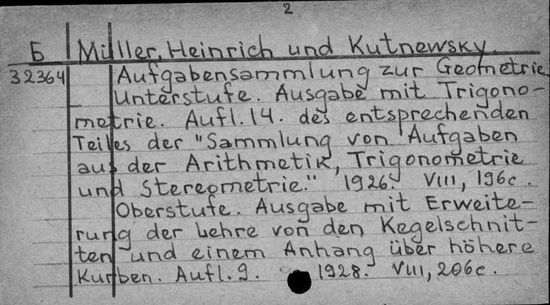 2
Б Müller, Heinrich und Kutnewsky.
32364 Aufgabensammlung zur Geometrie
Unterstufe. Ausgabe mit Trigono-
metrie. Aufl. 14. des entsprechenden
Teiles der "Sammlung von Aufgaben
aus der Arithmetik, Trigonometrie
und Stereometrie." 1926. VIII, 196c.
Oberstufe. Ausgabe mit Erweite-
rung der Lehre von den Kegelschnit-
ten und einem Anhang über höhere
Kurben. Aufl. 9. 1928. VIII, 206c.